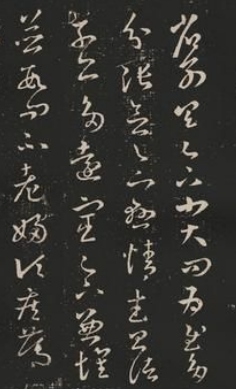 省別具足下小大問為慰多
分張念足下懸情武昌諸
子亦多遠宦足下兼懷
並數問不老婦頃疾篤